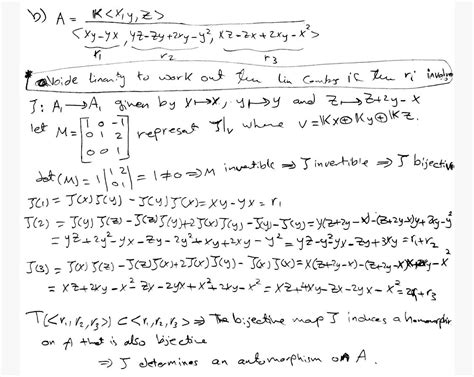 b) A = K<x,y,z>
<xy-yx, yz-zy+2xy-y², xz-zx+2xy-x²>
r₁ r₂ r₃
* avoide linarity to work out the lin combos if the rᵢ involve
J: A₁→A₁ given by x↦x, y↦y and z↦z+2y-x
let M = [1 0 -1
0 1 2
0 0 1] represent J|ᵥ where V = Kx⊕Ky⊕Kz.
det(M) = 1 |1 2
0 1| = 1 ≠ 0 ⇒ M invertible ⇒ J invertible ⇒ J bijective
J(1) = J(x)J(y) - J(y)J(x) = xy - yx = r₁
J(2) = J(y)J(z) - J(z)J(y) + 2J(x)J(y) - J(y)-J(y) = y(z+2y-x)-(z+2y-x)y+2xy-y²
= yz+2y²-yx-zy-2y²+xy+2xy-y² = yz-y²-yx-zy+3xy = r₁+r₂
J(3) = J(x)J(z) - J(z)J(x) + 2J(x)J(y) - J(x)J(x) = x(z+2y-x)-(z+2y-x)x+2xy-x²
= xz+2xy-x²-zx-2yx+x²+2xy-x² = xz+4xy-zx-2yx-x² = 2r₁+r₃
J(<r₁,r₂,r₃>) ⊂ <r₁,r₂,r₃> ⇒ The bijective map J induces a homomorphism
on A that is also bijective
⇒ J determines an automorphism on A.